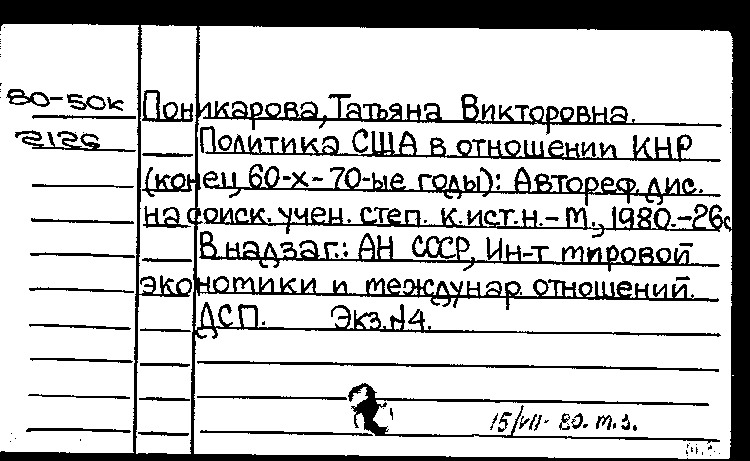 80-50к Поникарова, Татьяна Викторовна.
2126 Политика США в отношении КНР
(конец 60-х-70-ые годы): Автореф. дис.
на соиск. учен. степ. к.ист.н.-М., 1980.-26с
В надзаг.: АН СССР, Ин-т мировой
экономики и междунар. отношений.
ДСП. Экз.№4.
15/VII- 80. т.з.